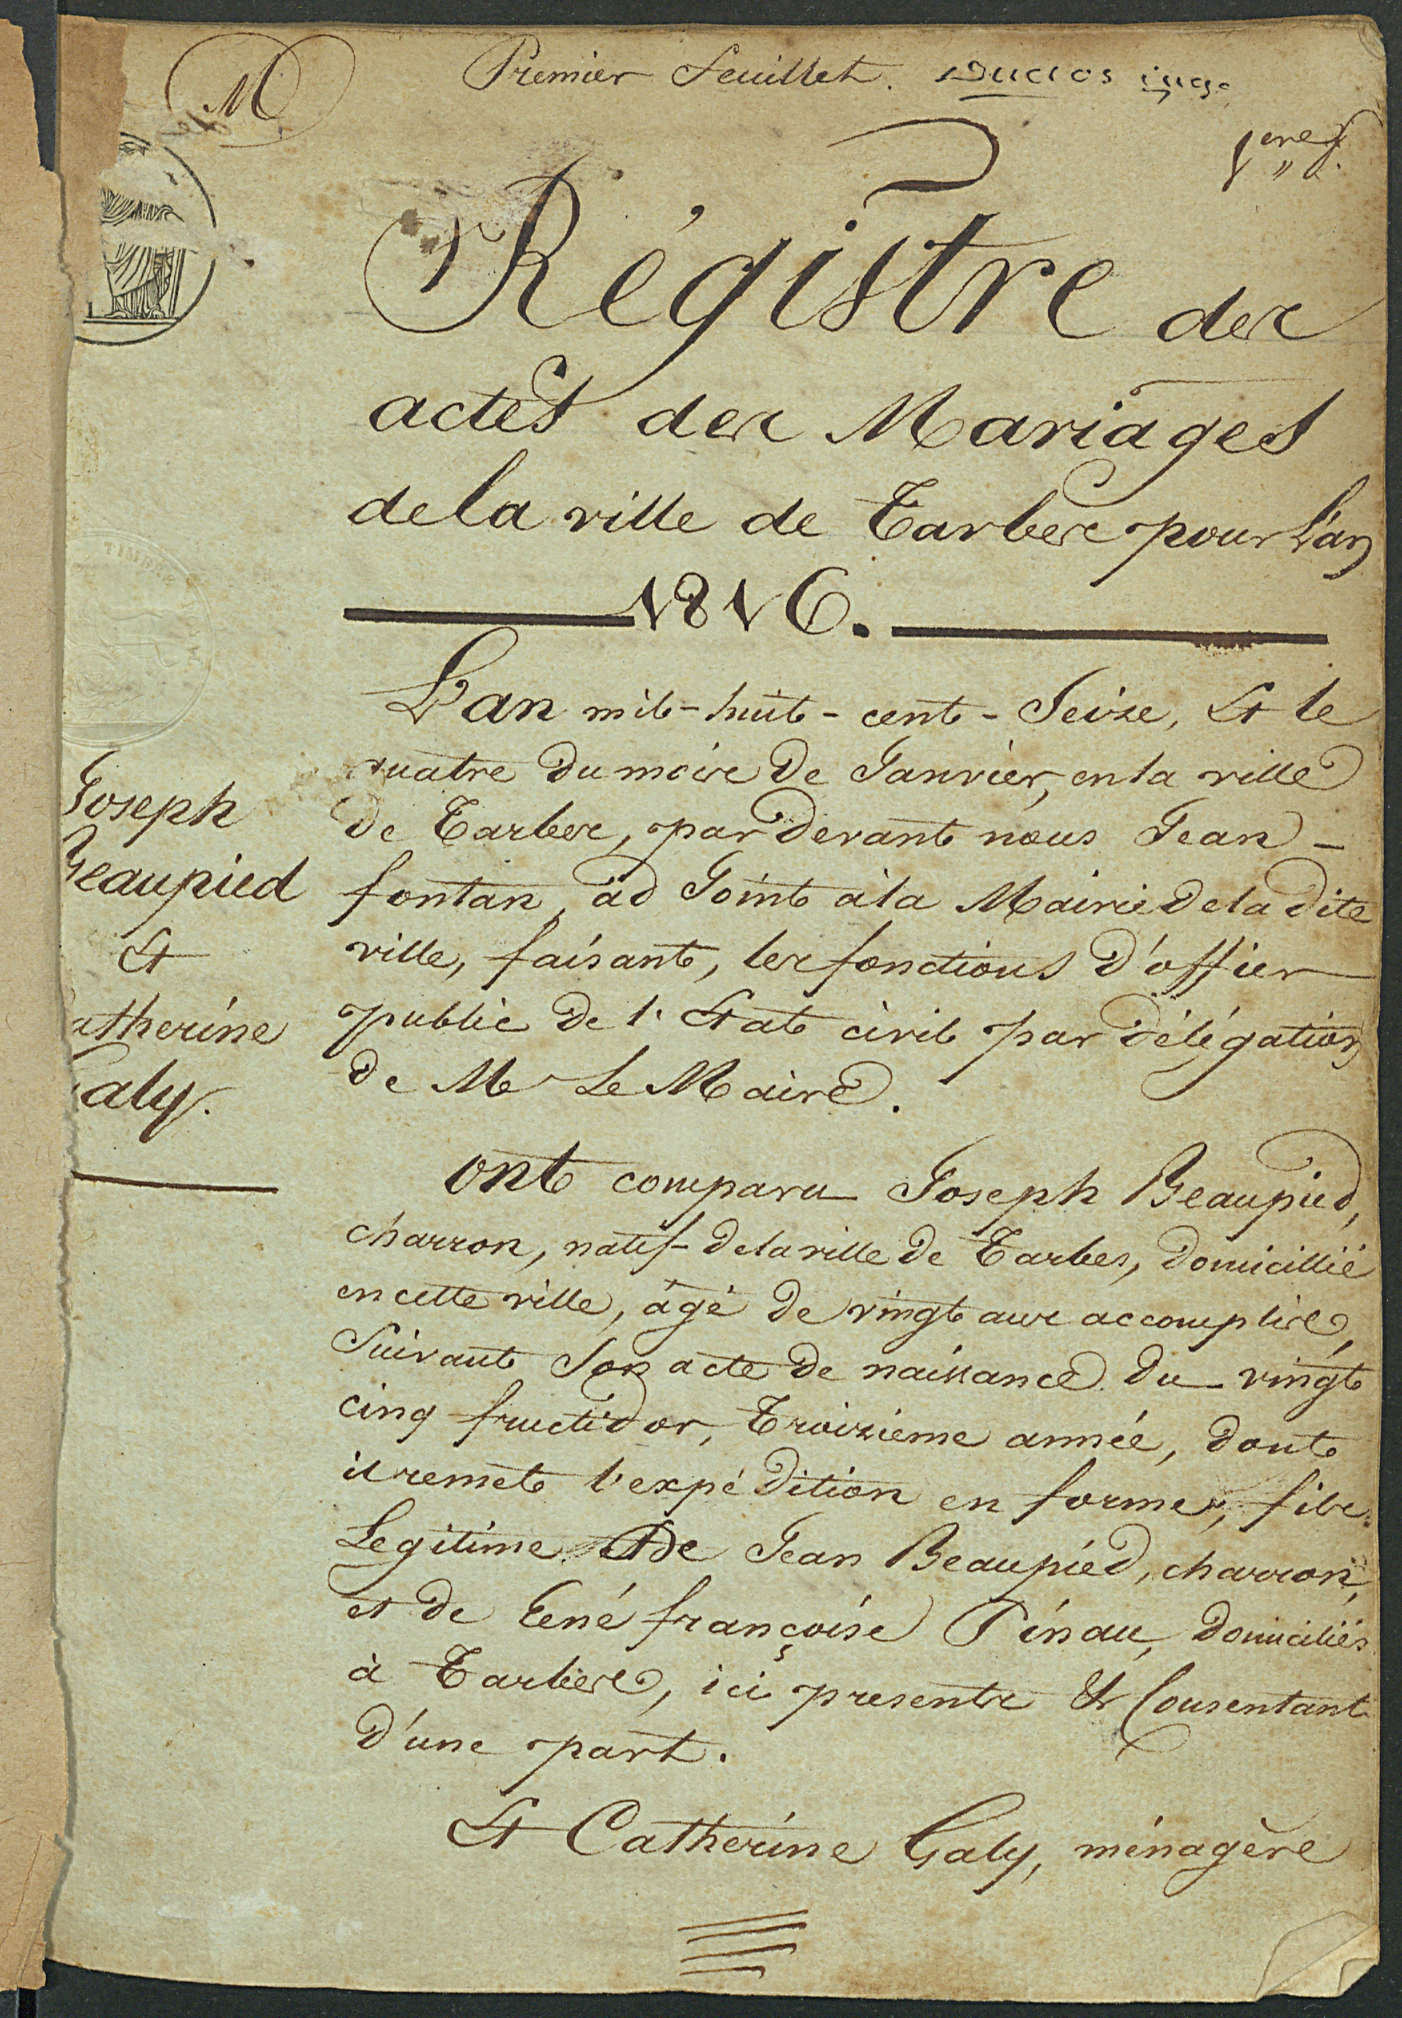 M
Premier feuillet. Duclos juge
1ere f.
Régistre des
actes des Mariages
de la ville de Tarbes pour l'an
1816.
L'an mil-huit-cent-Seize, Et le
quatre du mois de Janvier, en la ville
de Tarbes, par devant nous Jean
fontan, ad Joint à la Mairie de la dite
ville, faisant, les fonctions d'offier
public de l'Etat civil par délégation
de Mr Le Maire.
Joseph
Beaupied
Et
Catherine
Galy.
ont comparu Joseph Beaupied,
charron, natif de la ville de Tarbes, domicillié
en cette ville, âgé de vingt ans accomplis,
Suivant Son acte de naissance du vingt
cinq fructidor, Troizième année, dont
il remet l'expédition en forme, fils
Legitime De Jean Beaupied, charron,
et de françoise Pénau, domiciliés
à Tarbes, ici presents Et Consentant
D'une part.
Et Catherine Galy, ménagère